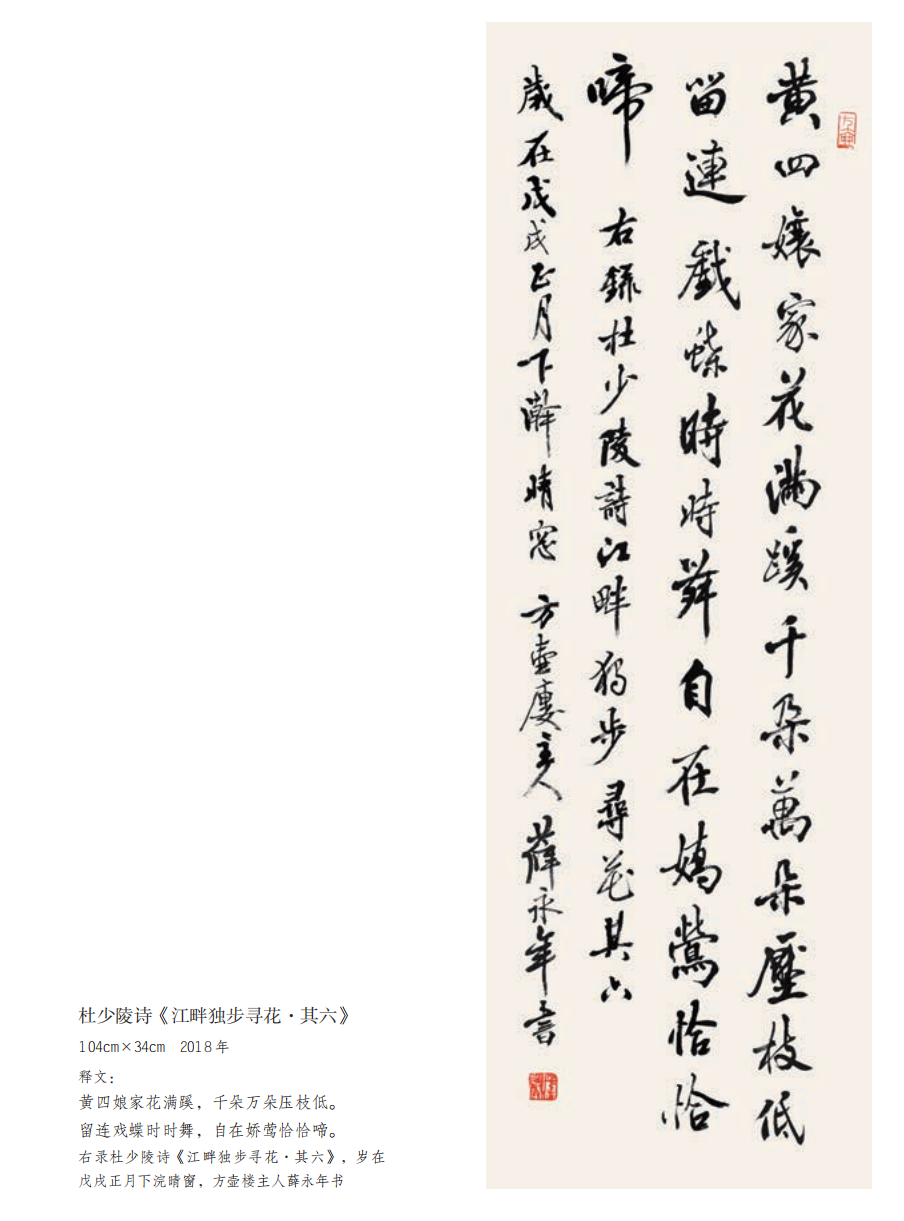 黄四孃家花满蹊千朵萬朵壓枝低
留連戲蝶時時舞自在嬌鶯恰恰
啼 右録杜少陵詩江畔獨步尋花其六
歲在戊戌正月下澣晴窓 方壺廔主人薛永年書
杜少陵诗《江畔独步寻花·其六》
104cm×34cm 2018年
释文：
黄四娘家花满蹊，千朵万朵压枝低。
留连戏蝶时时舞，自在娇莺恰恰啼。
右录杜少陵诗《江畔独步寻花·其六》，岁在
戊戌正月下浣晴窗，方壶楼主人薛永年书